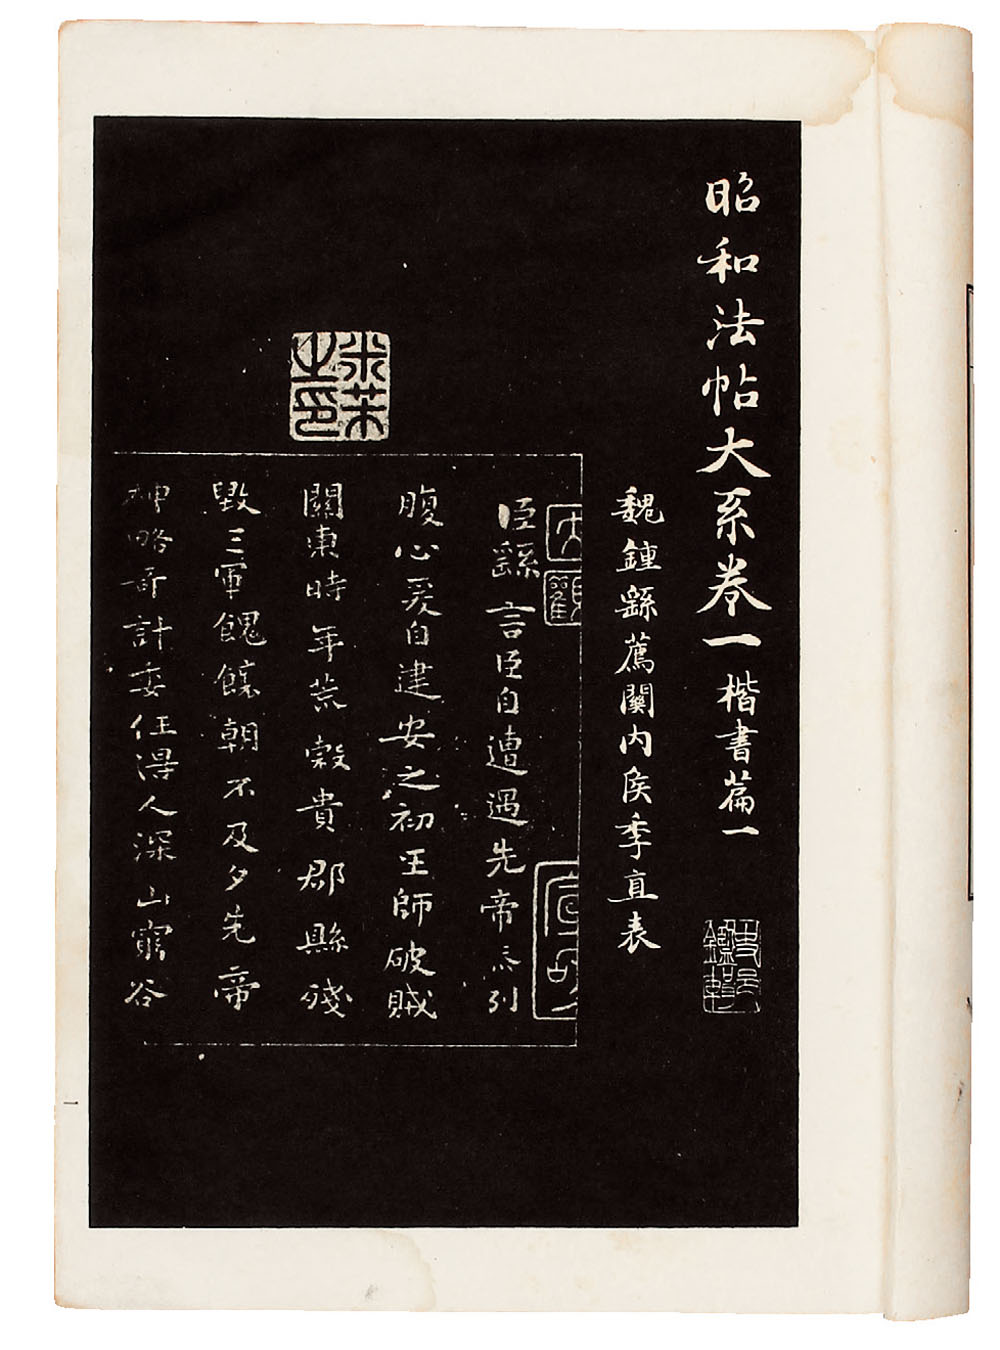 昭和法帖大系卷一楷書篇一
魏鍾繇薦關内侯季直表
大觀
臣繇言臣自遭遇先帝忝列
腹心爰自建安之初王師破賊
關東時年荒穀貴郡縣殘
毀三軍餽饟朝不及夕先帝
神略奇計委任得人深山窮谷
米芾之印
一